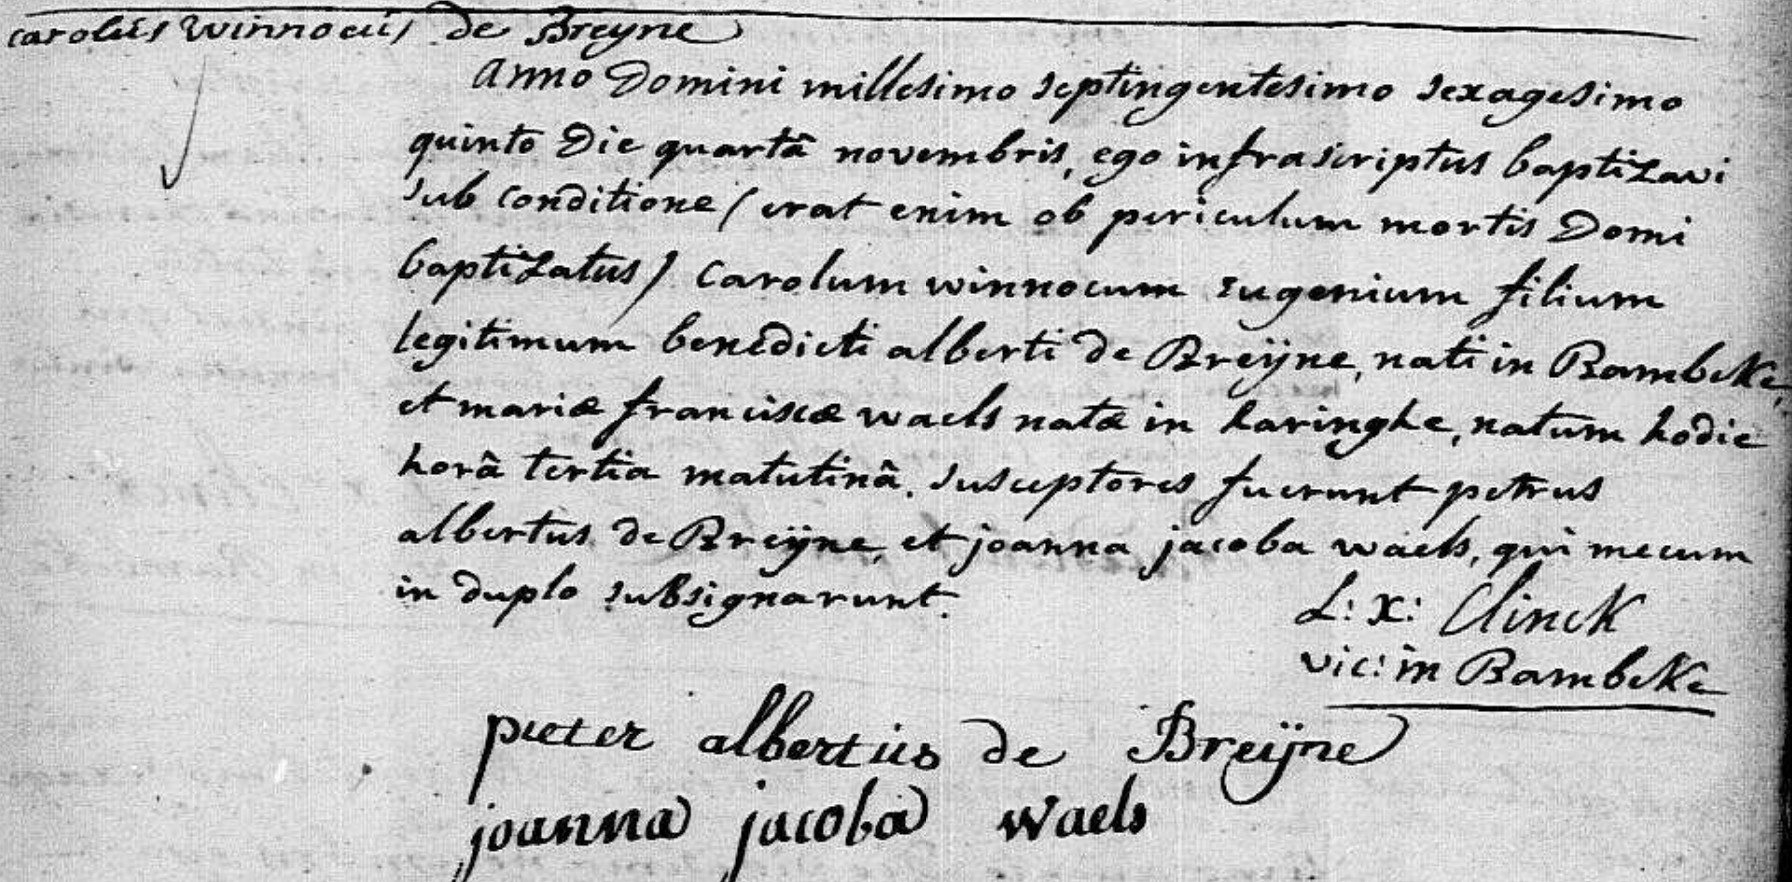 carolus winnocus de Breyne
Anno Domini millesimo septingentesimo sexagesimo
quinto Die quartâ novembris, ego infrascriptus baptizavi
sub conditione / erat enim ob periculum mortis Domi
baptizatus / Carolum winnocum Eugenium filium
legitimum benedicti alberti de Breÿne, nati in Bambeke,
et mariæ franciscæ waels natæ in haringhe, natum hodie
horâ tertia matutinâ. susceptores fuerunt petrus
albertus de Breÿne, et joanna jacoba waels, qui mecum
in duplo subsignarunt.
L: X: Clinck
vic: in Bambeke
pieter albertus de Breijne
joanna jacoba waels